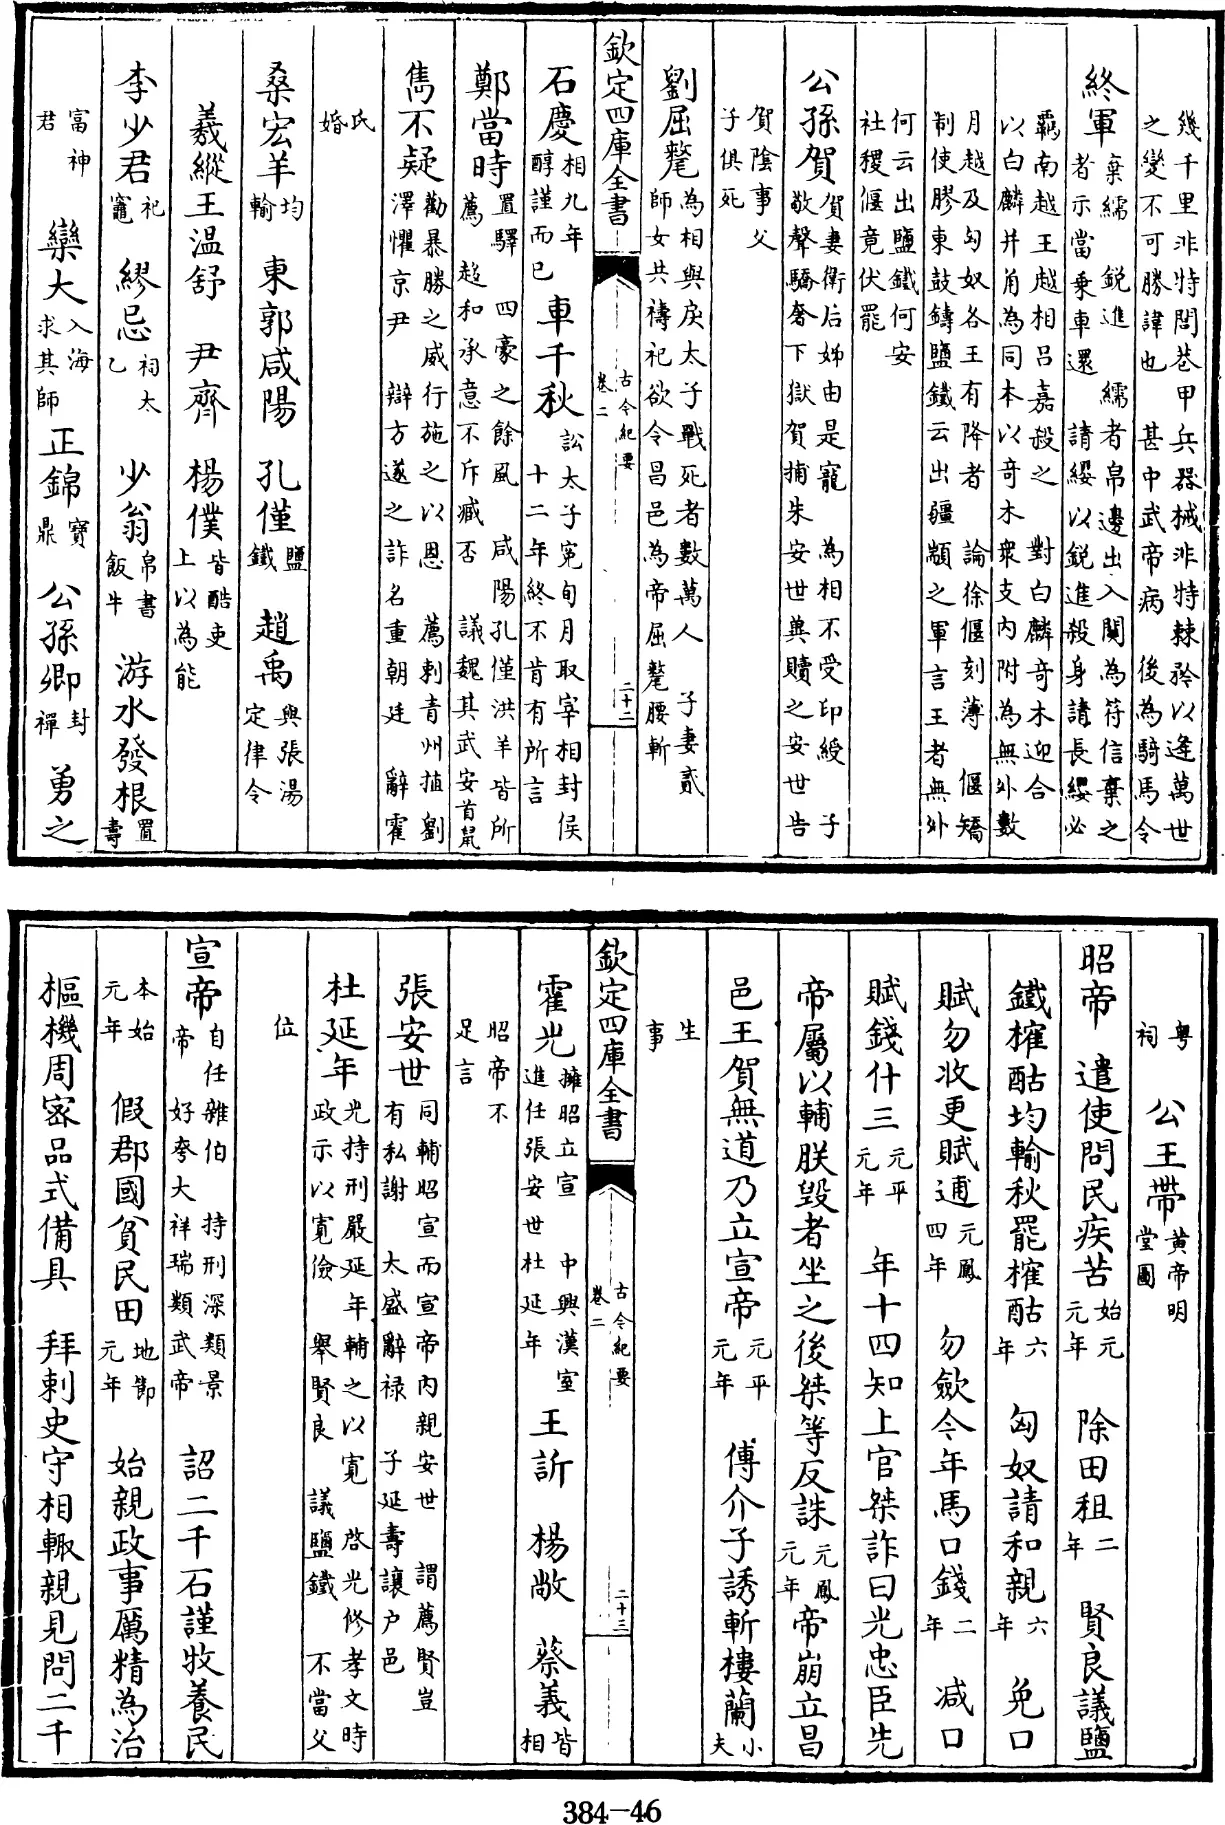 幾千里非特閭巷甲兵器械非特棘矜以逢萬世
之變不可勝諱也 甚中武帝病 後為騎馬令
終軍 棄繻 銳進 繻者帛邊出入關為符信棄之
者示當乗車還 請纓以銳進殺身請長纓必
羈南越王越相吕嘉殺之 對白麟竒木迎合
以白麟并角為同本以竒木衆支内附為無外數
月越及匈奴各王有降者 論徐偃刻薄 偃矯
制使膠東鼓鑄鹽鐵云出疆顓之軍言王者無外
何云出鹽鐵何安
社稷偃竟伏罷
公孫賀 賀妻衛后姊由是寵 為相不受印綬 子
敬聲驕奢下獄賀捕朱安世兾贖之安世告
賀陰事父
子俱死
劉屈氂 為相與戾太子戰死者數萬人 子妻貳
師女共禱祀欲令昌邑為帝屈氂腰斬
欽定四庫全書 古今紀要 卷二 二十二
石慶 相九年 醇謹而已 車千秋 訟太子寃旬月取宰相封侯 十二年終不肯有所言
鄭當時 置驛 四豪之餘風 咸陽孔僅洪羊皆所
薦 趨和承意不斥臧否 議魏其武安首鼠
雋不疑 勸暴勝之威行施之以恩 薦刺青州植劉
澤懼京尹 辯方遂之詐名重朝廷 辭霍
氏
婚
桑宏羊 均輸 東郭咸陽 孔僅 鹽鐵 趙禹 與張湯定律令
義縱 王溫舒 尹齊 楊僕 皆酷吏上以為能
李少君 祀竈 繆忌 祠太乙 少翁 帛書飯牛 游水發根 置壽
富神君 欒大 入海求其師 正錦 寶鼎 公孫卿 封禪 勇之
粤祠 公王帶 黄帝明堂圖
昭帝 遣使問民疾苦 始元元年 除田租 二年 賢良議鹽
鐵榷酤均輸秋罷榷酤 六年 匈奴請和親 六年 免口
賦勿收更賦逋 元鳳四年 勿歛今年馬口錢 二年 減口
賦錢什三 元平元年 年十四知上官桀詐曰光忠臣先
帝屬以輔朕毁者坐之後桀等反誅 元鳳元年 帝崩立昌
邑王賀無道乃立宣帝 元平元年 傅介子誘斬樓蘭 小夫
生
事
欽定四庫全書 古今紀要 卷二 二十三
霍光 擁昭立宣 中興漢室 進任張安世杜延年 王訢 楊敞 蔡義 皆相
昭帝不
足言
張安世 同輔昭宣而宣帝内親安世 謂薦賢豈
有私謝 太盛辭禄 子延壽讓户邑
杜延年 光持刑嚴延年輔之以寛 啓光修孝文時
政示以寛儉 舉賢良 議鹽鐵 不當父
位
宣帝 自任雜伯 持刑深類景帝 好夸大祥瑞類武帝 詔二千石謹牧養民
本始元年 假郡國貧民田 地節元年 始親政事厲精為治
樞機周宻品式備具 拜刺史守相輙親見問二千
384-46